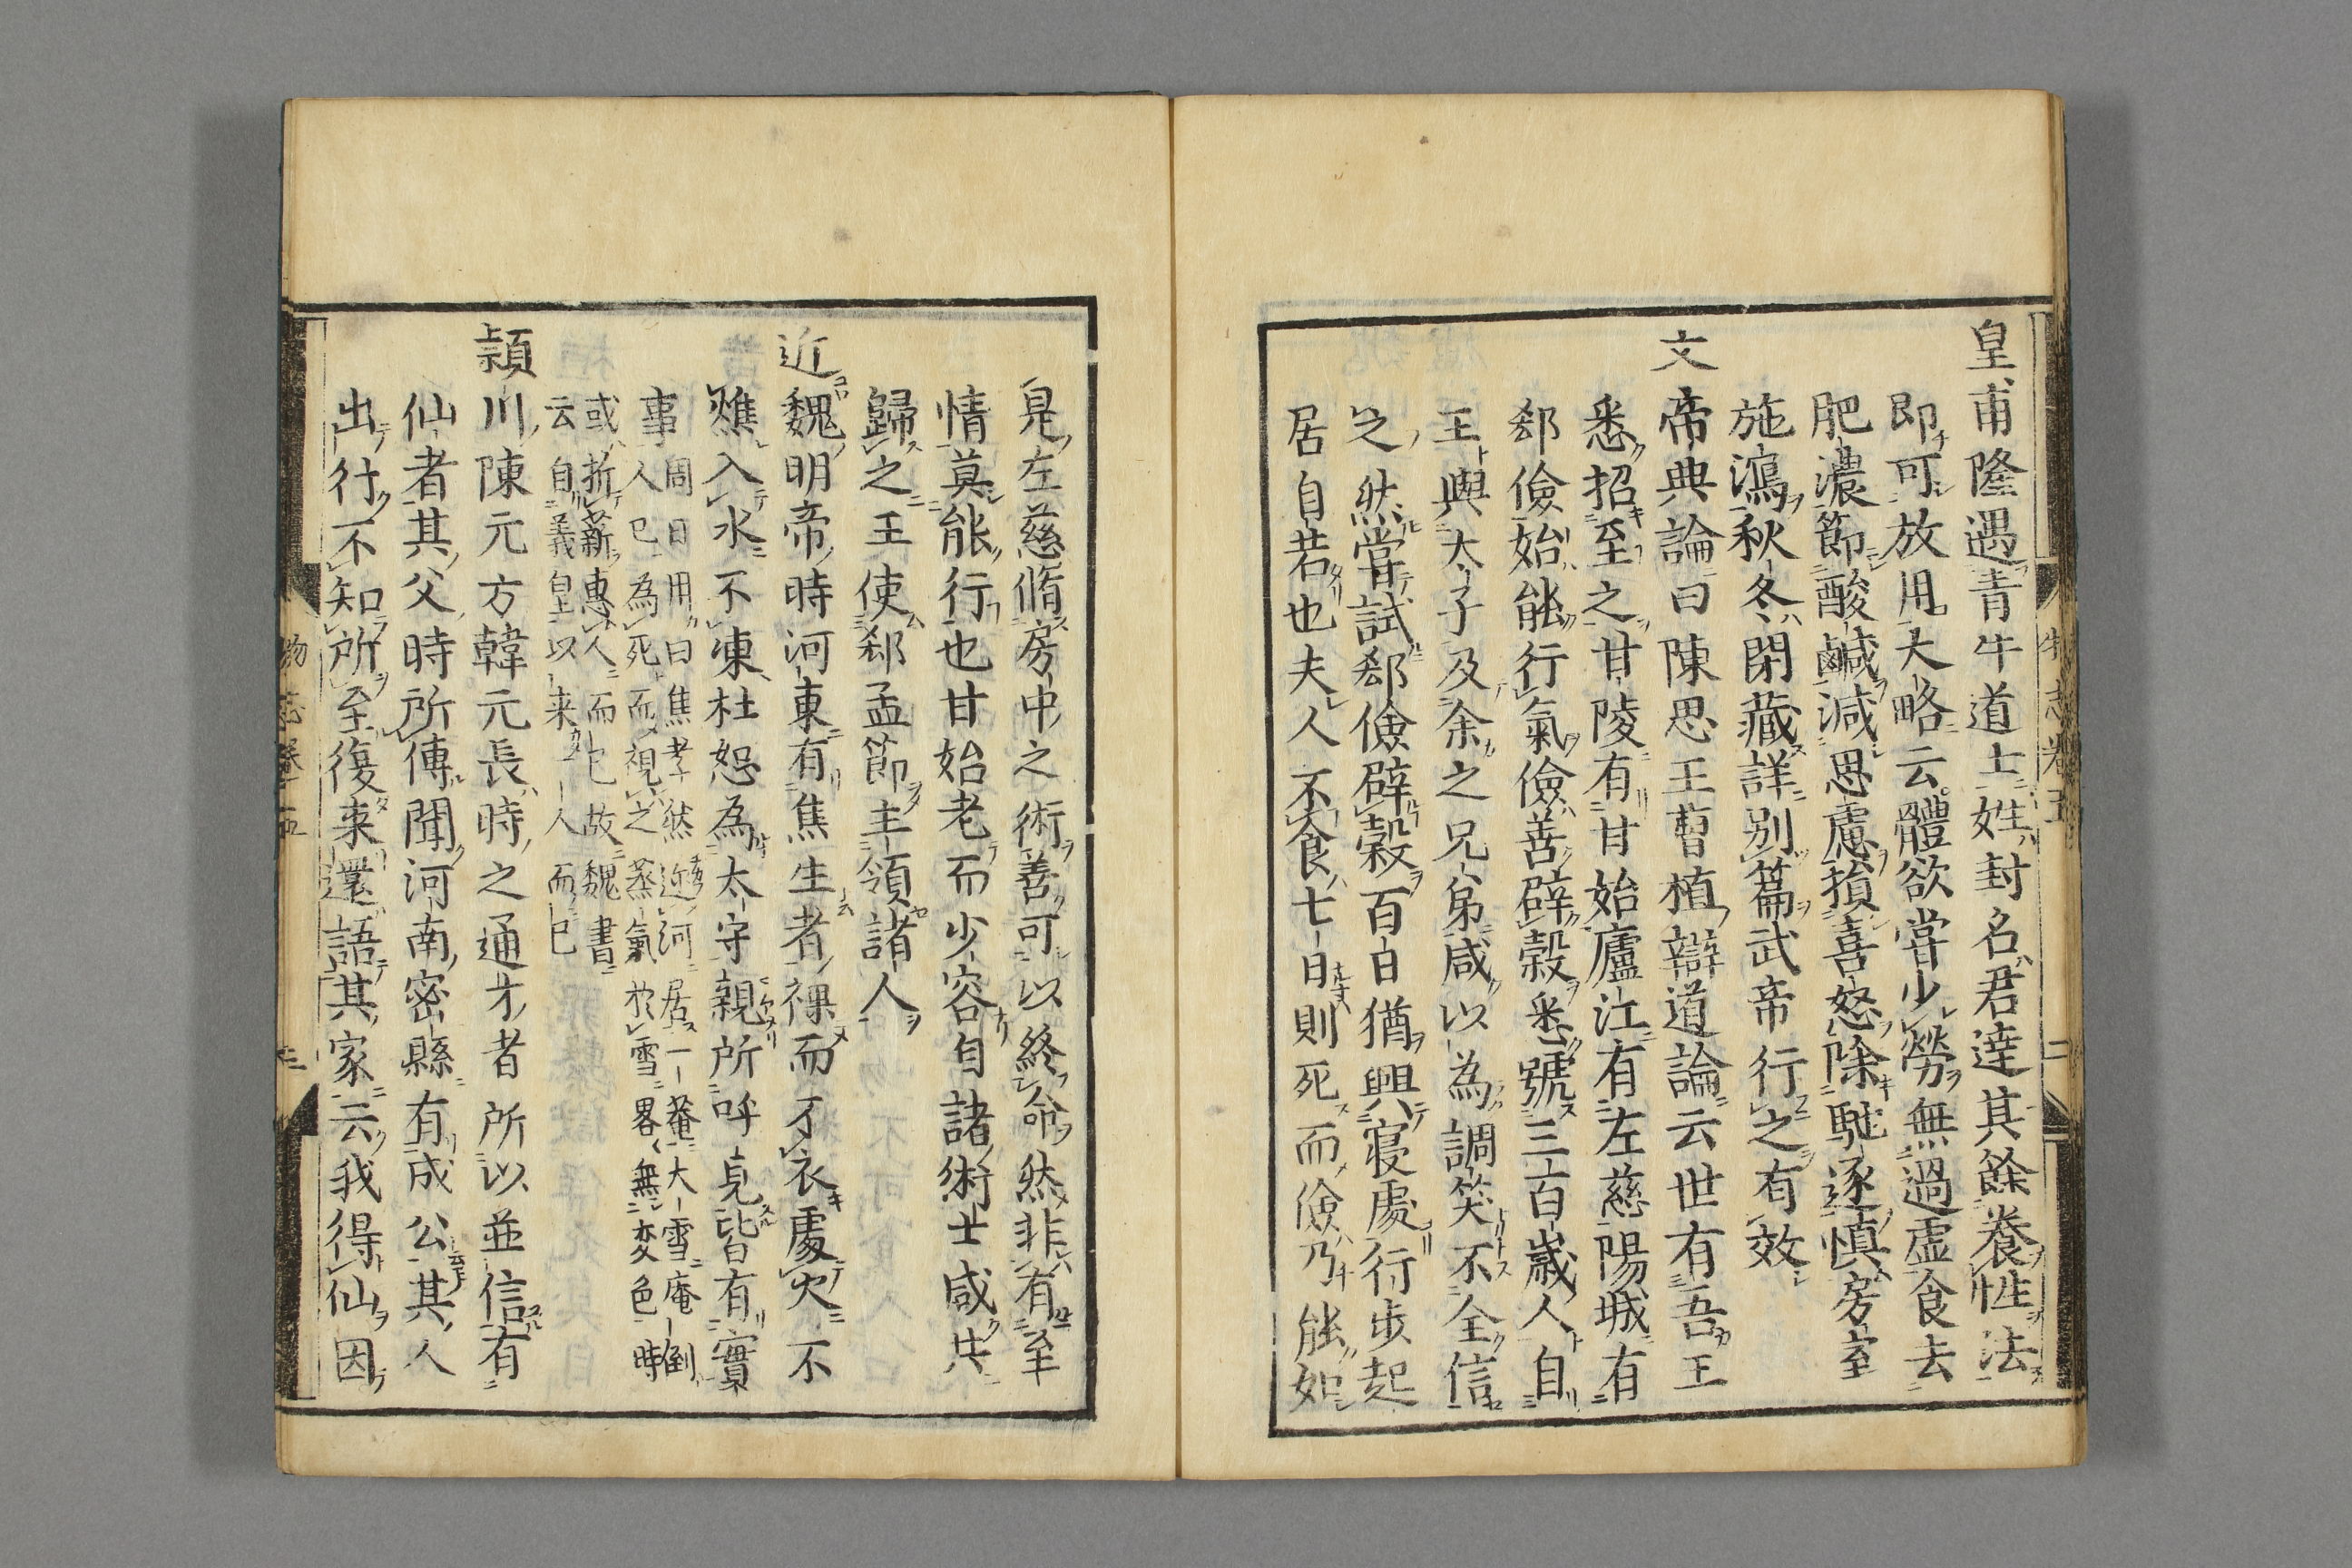 皇甫隆遇青牛道士姓封名君達其餘養性法
即可放用大略云體欲嘗少勞無過虛食去
肥濃節酸鹹減思慮損喜怒除馳逐慎房室
施瀉秋冬閉藏詳別篇武帝行之有效
文帝典論曰陳思王曹植辯道論云世有吾王
悉招至之甘陵有甘始廬江有左慈陽城有
郄儉始能行氣儉善辟穀悉號三百歲人自
王與太子及余之兄弟咸以為調笑不全信
之然嘗試郄儉辟穀百日猶與寢處行步起
居自若也夫人不食七日則死而儉乃能如
是左慈脩房中之術善可以終命然非有至
情莫能行也甘始老而少容自諸術士咸共
歸之王使郄孟節主領諸人
近魏明帝時河東有焦生者裸而不衣處火不
燋入水不凍杜恕為太守親所呼見皆有實
事周日用曰焦孝然近河居一菴大雪庵倒
人已為死而視之蒸氣於雪畧無变色時
或折薪惠人而已故魏書
云自羲皇以来一人而已
潁川陳元方韓元長時之通才者所以並信有
仙者其父時所傳聞河南密縣有成公其人
出行不知所至復来還語其家云我得仙因
物志卷五
二
物志卷五
三